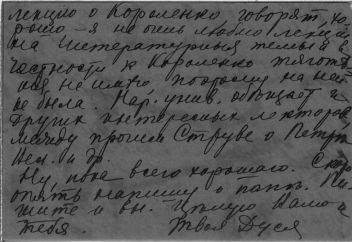 лекцию о Короленко говорят, хо-
рошо – я не очень люблю лекции
на литературныя темы и в
частности к Короленко тяготе-
ния не имею, поэтому на ней
не была. Нар. унив. обещает и
других интересных лекторов
между прочим Струве о Петре
и др.
Ну, пока всего хорошаго. Скоро
опять напишу о папе. Пи-
шите и вы. Целую Мамо и
тебя. Твоя Дуся